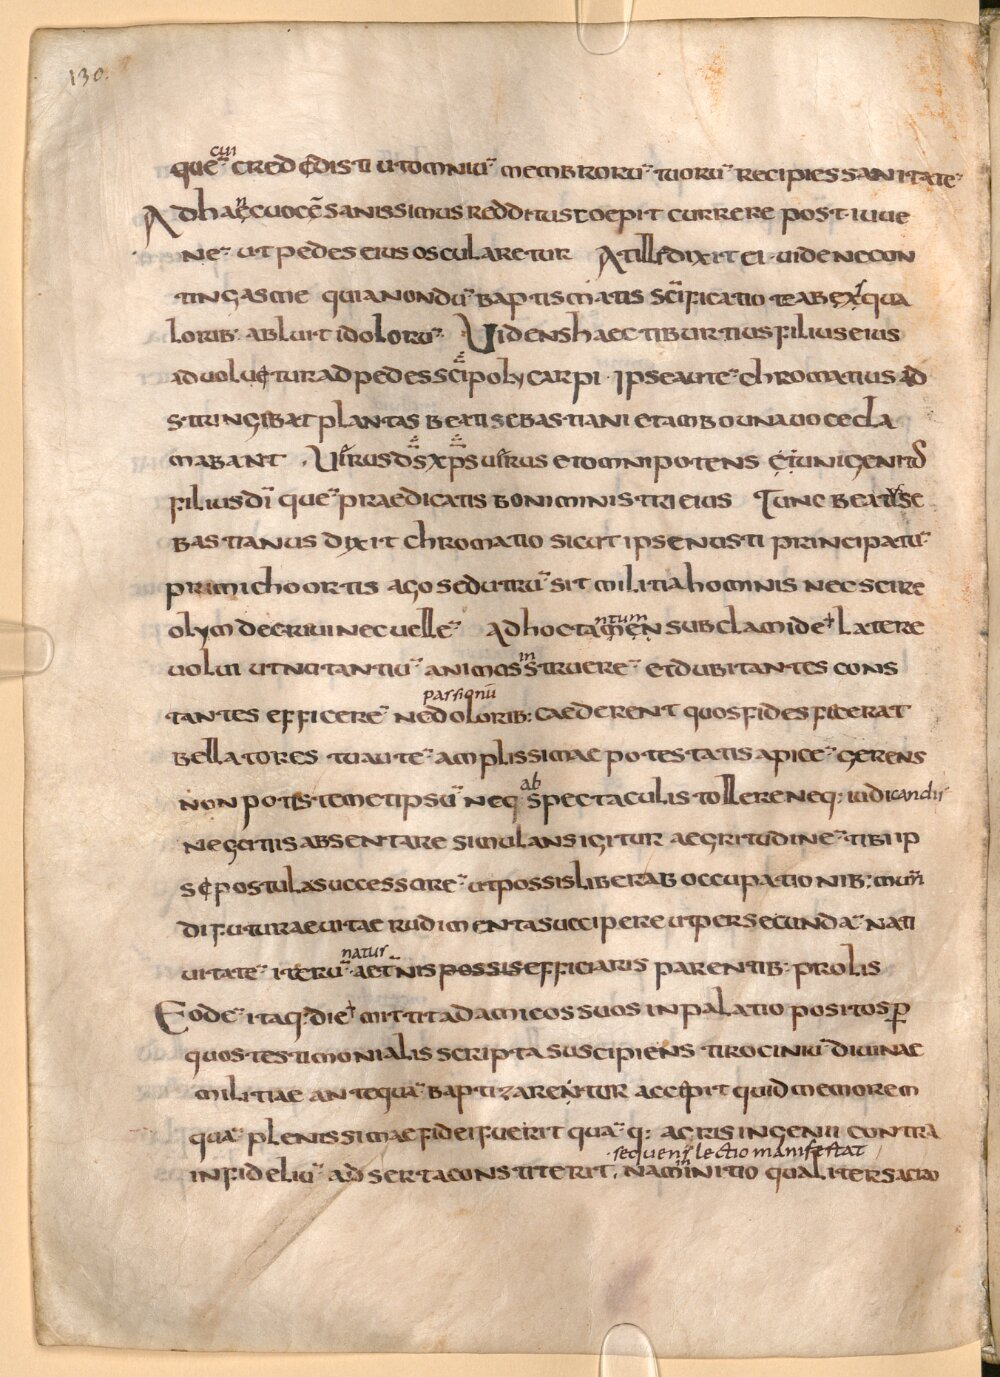 130.
cui
quē credidisti ut omniū membrorū tuorū recipies sanitatē
Ad hanc vocē sanissimus redditus coepit currere post iuue
nē ut pedes eius oscularetur At ille dixit ei uide ne con
tingas me quia nondū baptismatis scīficatio te ab ex qua
lorib: abluit idolorū Uidens haec tiburtius filius eius
aduoluitur ad pedes scī polycarpi Ipse autē chromatius ad
stringebat plantas beati sebastiani et ambo una uoce cla
mabant Uerus d̄s xp̄s uerus et omnipotens et unigenitus
filius dī quē praedicatis boni ministri eius Tunc beatus se
bastianus dixit chromatio sicut ipse nosti principatū
primi choortis ago sed utrū sit militia hominis nec scire
olym decreui nec uelle Ad hoc tamen sub clamide latere
ntum
uolui ut nutantiū animos struere et dubitantes cons
in
passionū
tantes efficere ne dolorib: caederent quos fides fecerat
bellatores tu autē amplissimae potestatis apicē gerens
ab
non potis temetipsū neq spectaculis tollere neq: iudicandis
negotiis absentare simulans igitur aegritudinē tibi ip
se postula successorē ut possis liber ab occupationib: mun
di futurae uitae rudimenta succipere ut per secundā nati
natur
uitatē iterū aeternis possis efficiaris parentib: prolis
Eodē itaq: die mittit ad amicos suos in palatio positos p
quos testimonialis scripta suscipiens tirociniū diuinae
militiae antequā baptizarentur accepit quid memorem
quā plenissimae fidei fuerit quā q: acris ingenii contra
sequens lectio manifestat
infideliū adserta constiterit. nam initio qualiter sacro